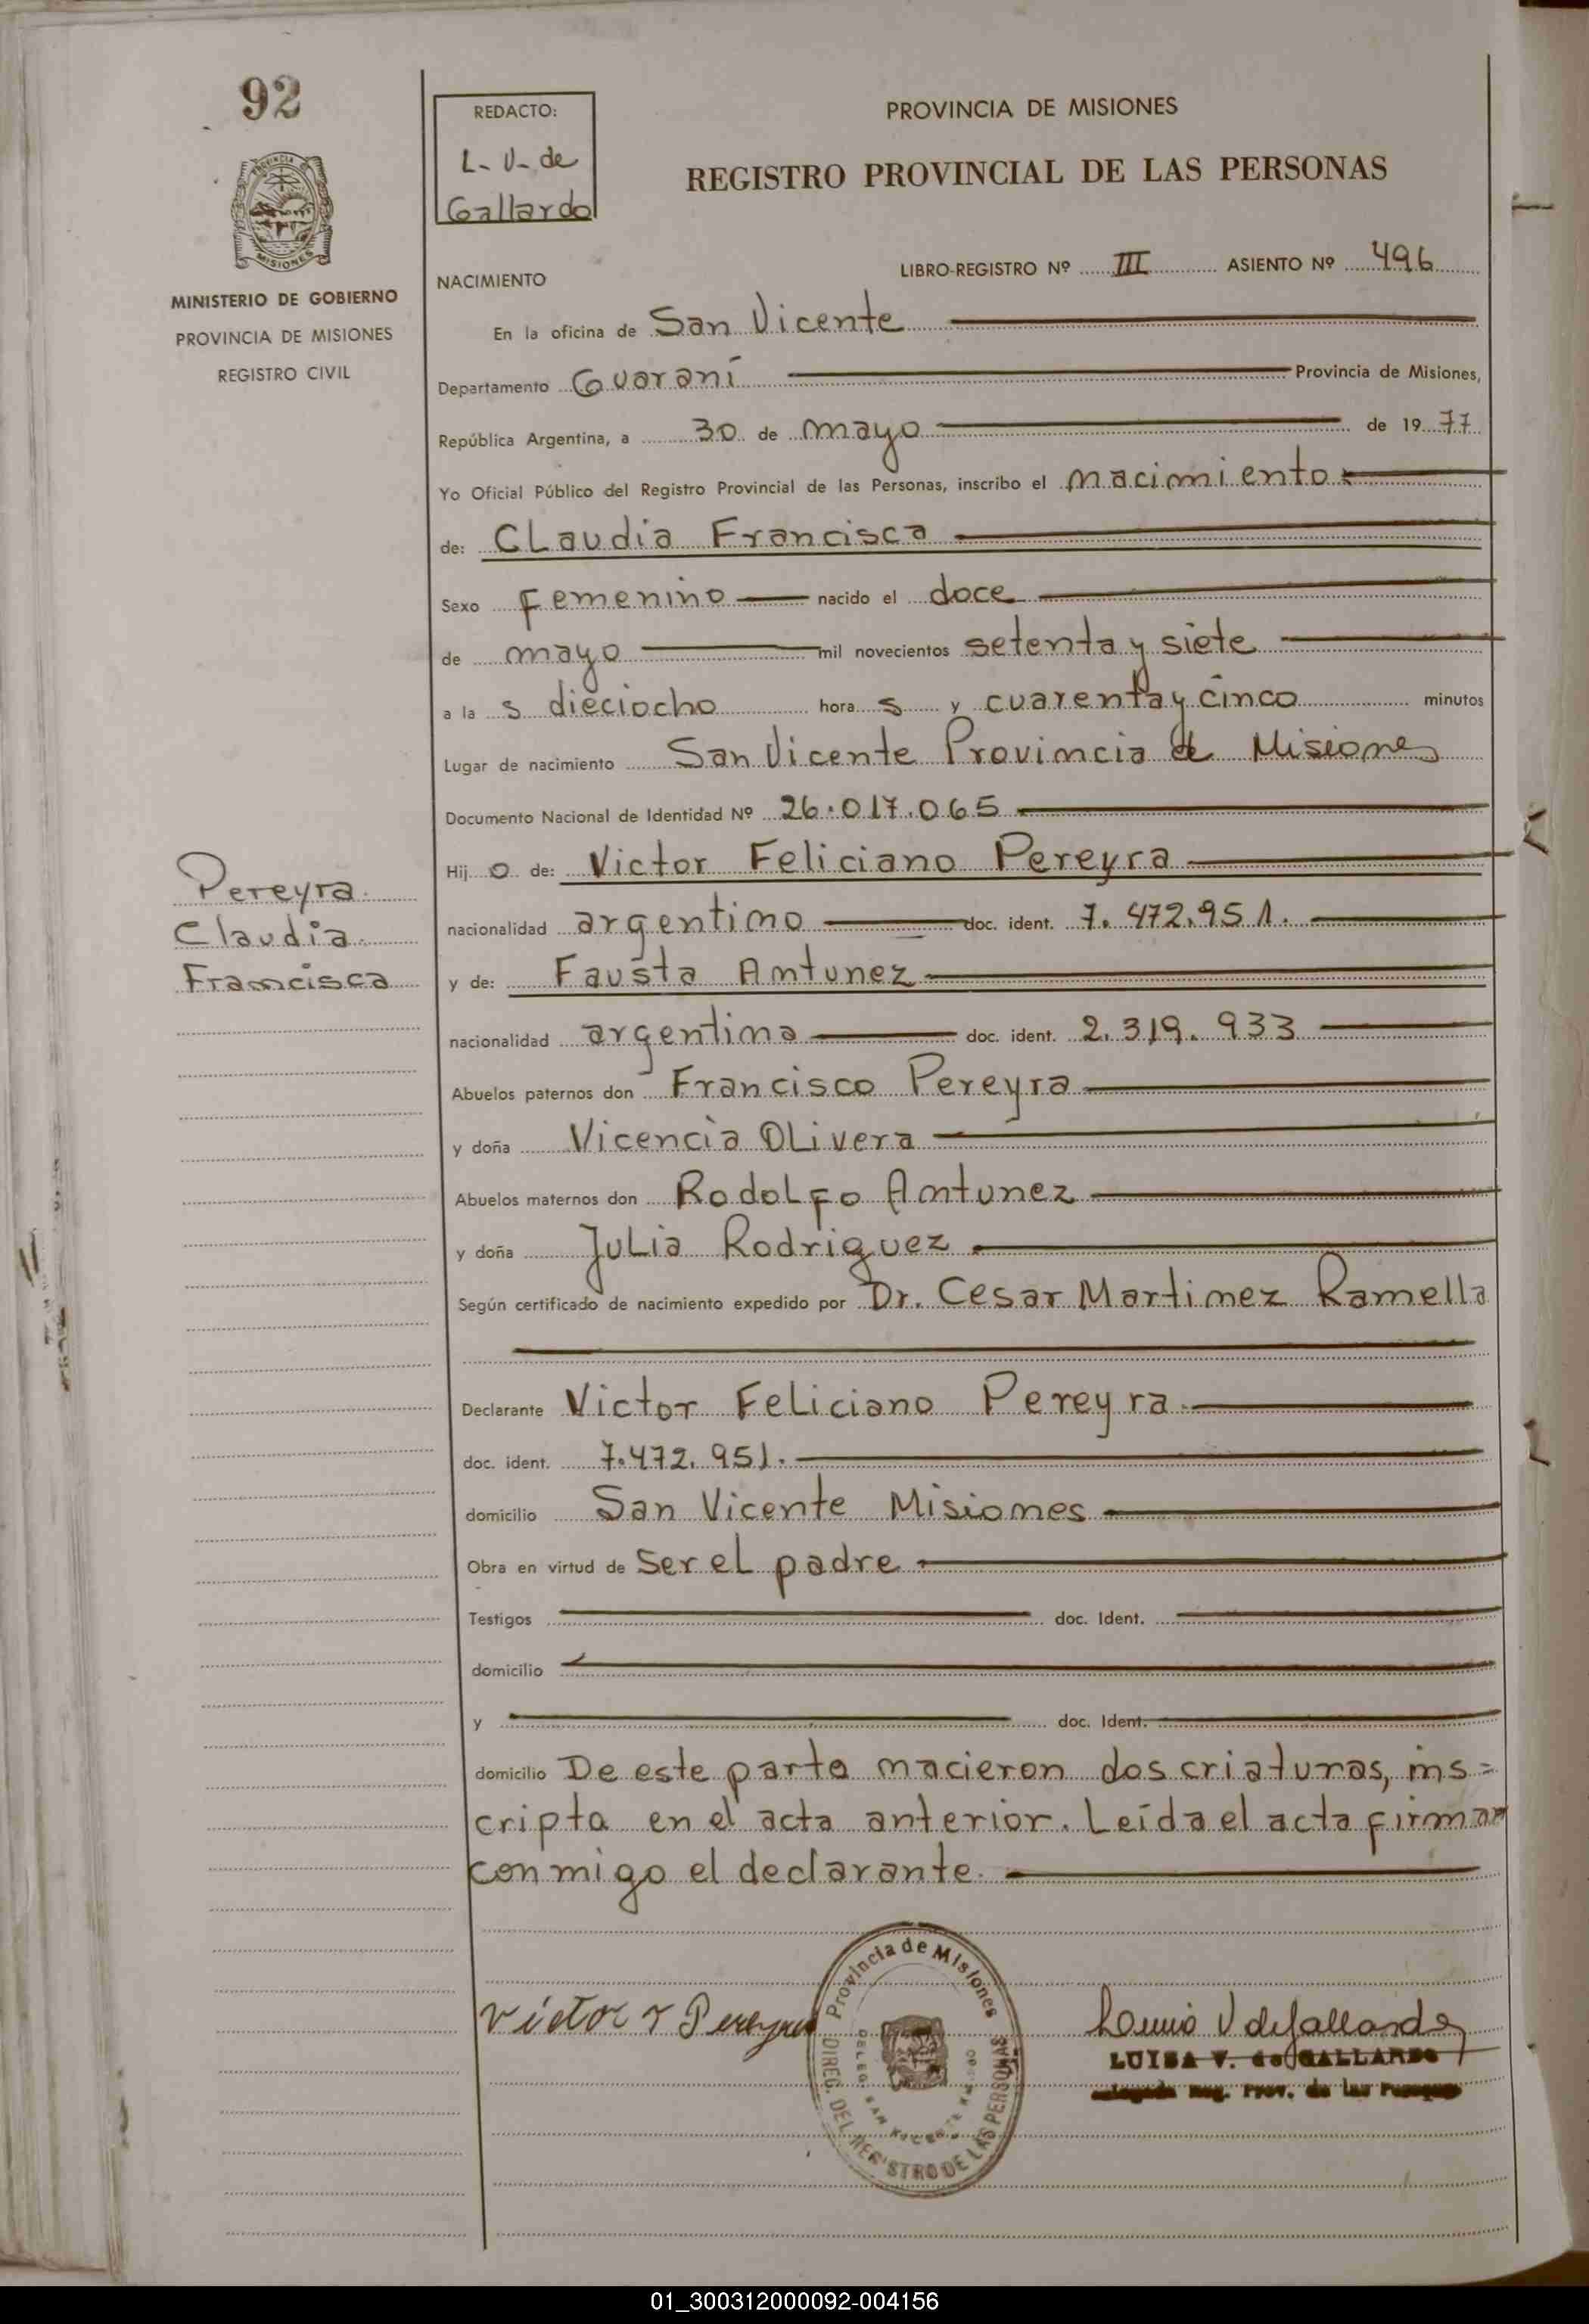 92
PROVINCIA
MISIONES
MINISTERIO DE GOBIERNO
PROVINCIA DE MISIONES
REGISTRO CIVIL
REDACTO:
L- V- de
Gallardo
PROVINCIA DE MISIONES
REGISTRO PROVINCIAL DE LAS PERSONAS
NACIMIENTO
LIBRO-REGISTRO Nº III ASIENTO Nº 496
En la oficina de San Vicente
Departamento Guaraní Provincia de Misiones,
República Argentina, a 30 de mayo de 1977
Yo Oficial Público del Registro Provincial de las Personas, inscribo el nacimiento
de: Claudia Francisca
Sexo Femenino nacido el doce
de mayo mil novecientos setenta y siete
a la s dieciocho hora s y cuarenta y cinco minutos
Lugar de nacimiento San Vicente Provincia de Misiones
Documento Nacional de Identidad Nº 26.017.065
Hij o de: Victor Feliciano Pereyra
nacionalidad argentino doc. ident. 7.472.951.
y de: Fausta Antunez
nacionalidad argentina doc. ident. 2.319.933
Abuelos paternos don Francisco Pereyra
y doña Vicencia Olivera
Abuelos maternos don Rodolfo Antunez
y doña Julia Rodriguez
Según certificado de nacimiento expedido por Dr. Cesar Martinez Ramella
Declarante Victor Feliciano Pereyra
doc. ident. 7.472.951.
domicilio San Vicente Misiones
Obra en virtud de Ser el padre
Testigos doc. Ident.
domicilio
y doc. Ident.
domicilio De este parto nacieron dos criaturas, ins=
cripta en el acta anterior. Leída el acta firman
conmigo el declarante.
Pereyra
Claudia
Francisca
Victor F Pereyra
Provincia de Misiones
DIREC. DEL REGISTRO DE LAS PERSONAS
Luisa V de Gallardo
LUISA V. de GALLARDO
Reg. Prov. de las Personas
01_300312000092-004156